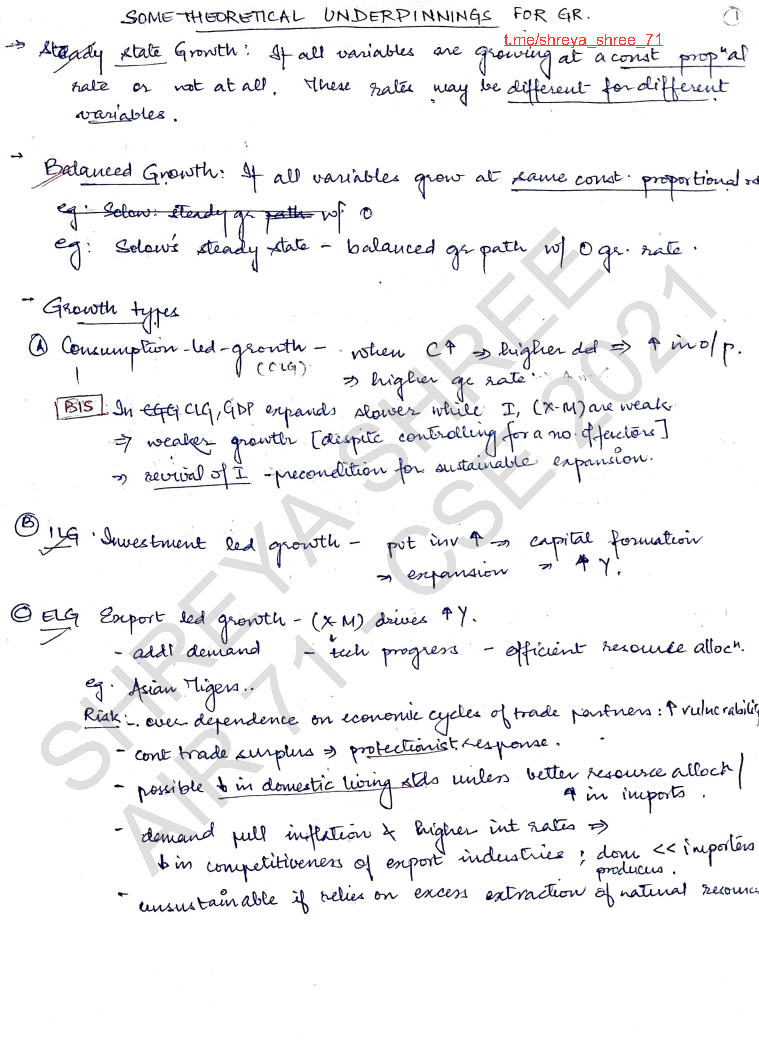 SOME THEORETICAL UNDERPINNINGS FOR GR. 1
t.me/shreya_shree_71
→ Steady state Growth: If all variables are growing at a const propⁿal
rate or not at all. These rates may be different for different
variables.
→ Balanced Growth: If all variables grow at same const. proportional
eg: Solow: steady gr path w/ 0
eg: Solow's steady state - balanced gr path w/ 0 gr. rate.
→ Growth types
(A) Consumption-led-growth - when C↑ ⇒ higher dd ⇒ ↑ in o/p.
(CLG) ⇒ higher gr rate
BIS: In CLG, GDP expands slower while I, (X-M) are weak
⇒ weaker growth [despite controlling for a no. of factors]
⇒ revival of I - precondition for sustainable expansion.
(B) ILG Investment led growth - pvt inv ↑ → capital formation
⇒ expansion → ↑ Y.
(C) ELG Export led growth - (X-M) drives ↑Y.
- addl demand - tech progress - efficient resource allocn.
eg. Asian Tigers..
Risk: - over dependence on economic cycles of trade partners: ↑ vulnerability
- cont trade surplus ⇒ protectionist response.
- possible ↓ in domestic living stds unless better resource allocn/
↑ in imports.
- demand pull inflation & higher int rates ⇒
↓ in competitiveness of export industries; dom << importers
producers.
- unsustainable if relies on excess extraction of natural resource
SHREYA SHREE
AIR 71 - CSE 2021